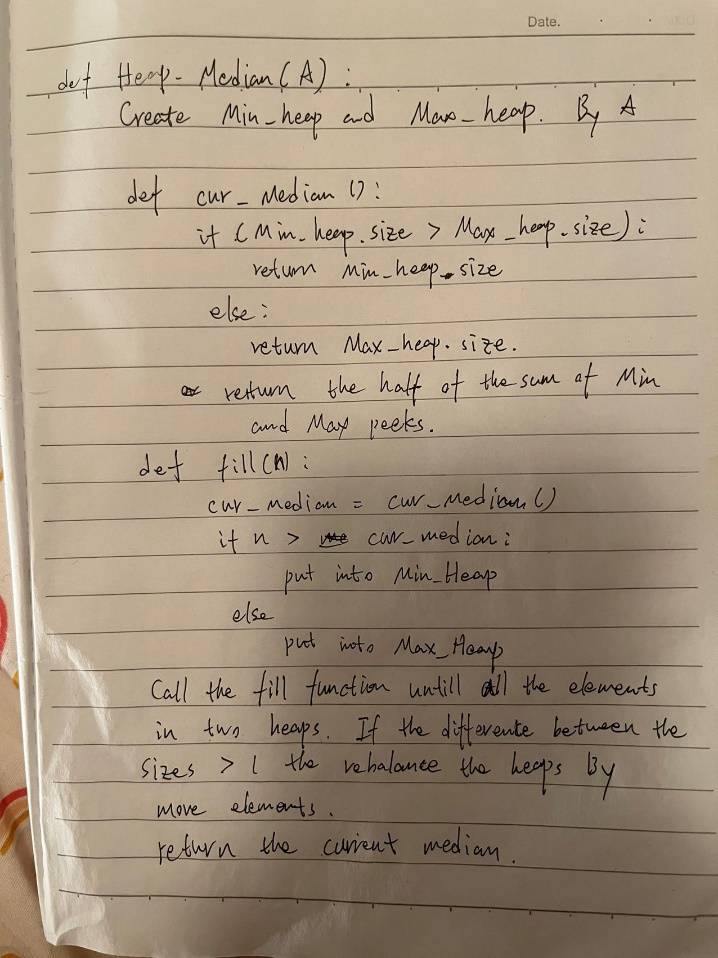 Date.
def Heap-Median(A):
Create Min_heap and Max_heap. By A
def cur_Median():
if (Min_heap.size > Max_heap.size):
return Min_heap.size
else:
return Max_heap.size.
return the half of the sum of Min
and Max peeks.
def fill(n):
cur_median = cur_median()
if n > cur_median:
put into Min_Heap
else
put into Max_Heap
Call the fill function untill all the elements
in two heaps. If the differente between the
sizes > 1 the rebalance the heaps By
move elements.
return the current median.